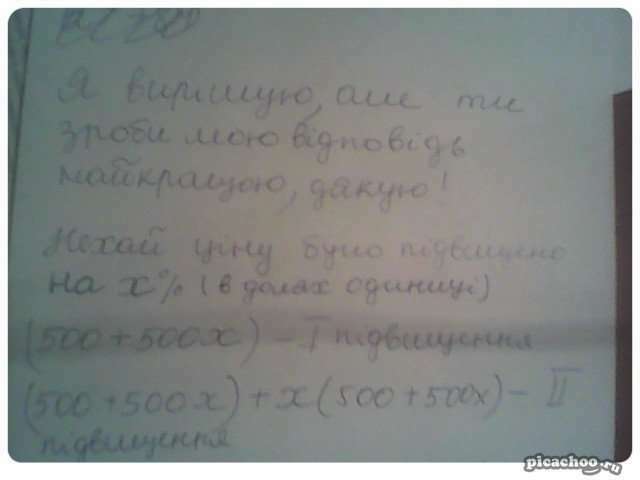 Я вирішую, але ти
зроби мою відповідь
найкращою, дякую!
Нехай ціну було підвищено
на x% (в долях одиниці)
(500+500x) - I підвищення
(500+500x)+x(500+500x) - II
підвищення
picachoo.ru